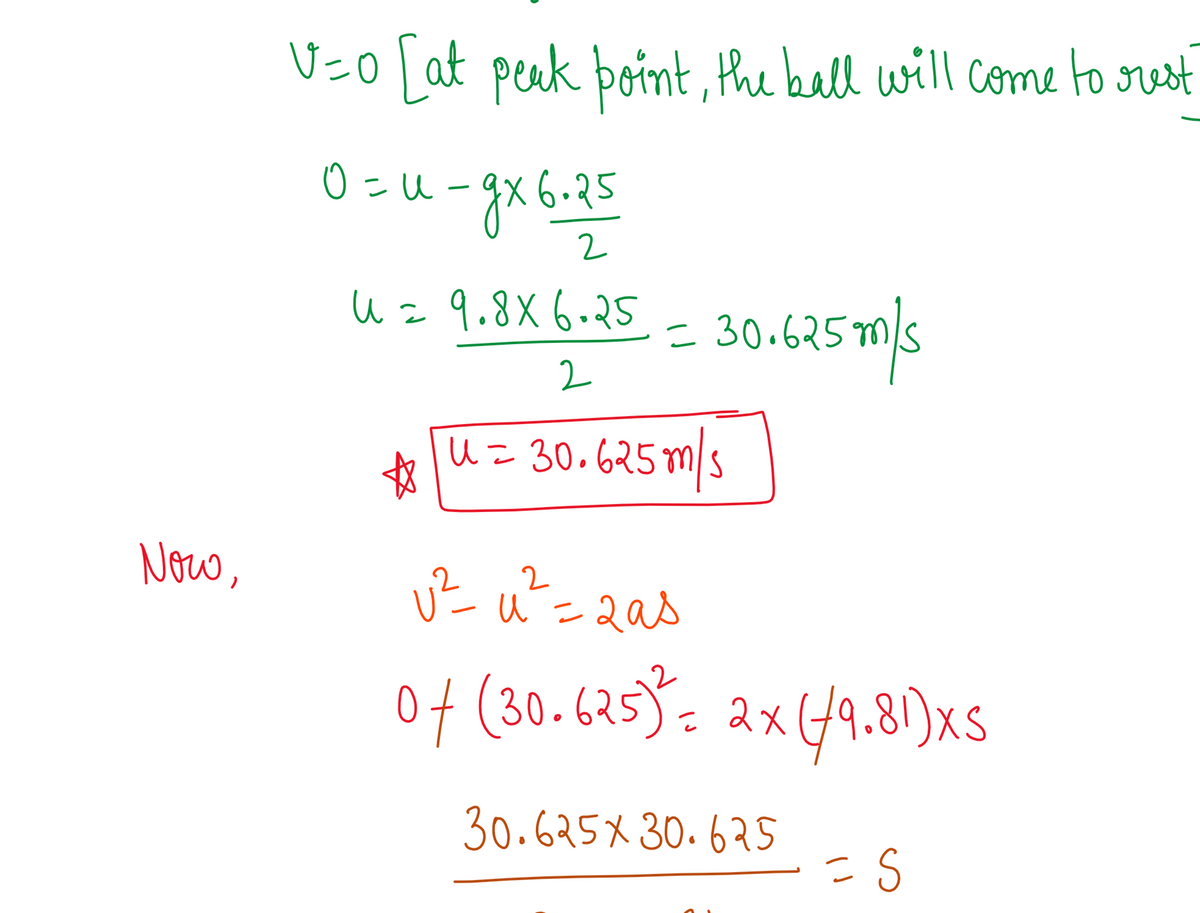 V=0 [at peak point, the ball will come to rest]
0 = u - g× 6.25/2
u = 9.8×6.25/2 = 30.625 m/s
☆ u = 30.625 m/s
Now,
v² - u² = 2as
0 - (30.625)² = 2×(-9.81)×s
30.625×30.625 = s